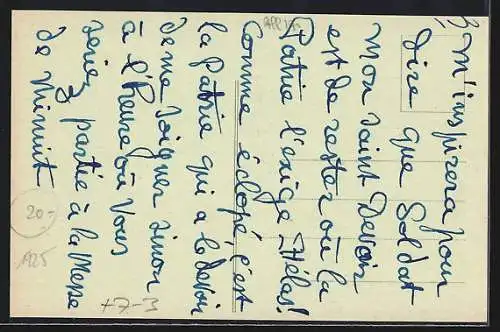 3)
m'inspirera pour
dire que Soldat
mon saint Devoir
est de rester où la
Patrie l'exige. Hélas!
Comme éclopé, c'est
la Patrie qui a le Devoir
de me soigner sinon
à l'heure où Vous
seriez partie à la Messe
de Minuit
20-
A25
+7-3